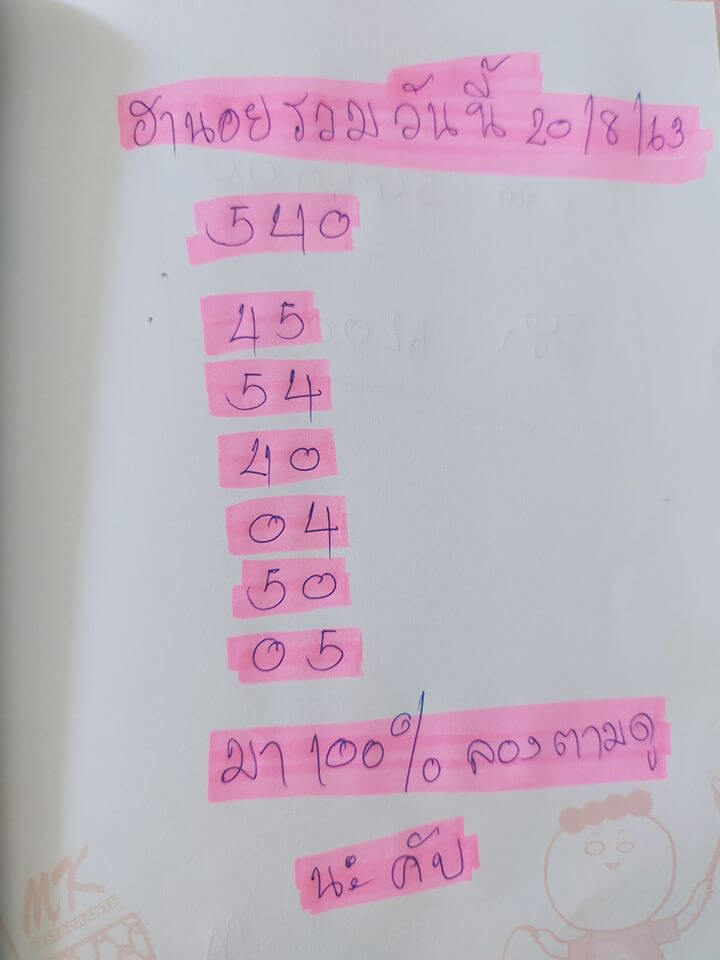 ฮานอย รวม วันนี้ 20/8/63
540
45
54
40
04
50
05
มา 100% ลองตามดู
นะ คับ
MK
RESTAURANTS